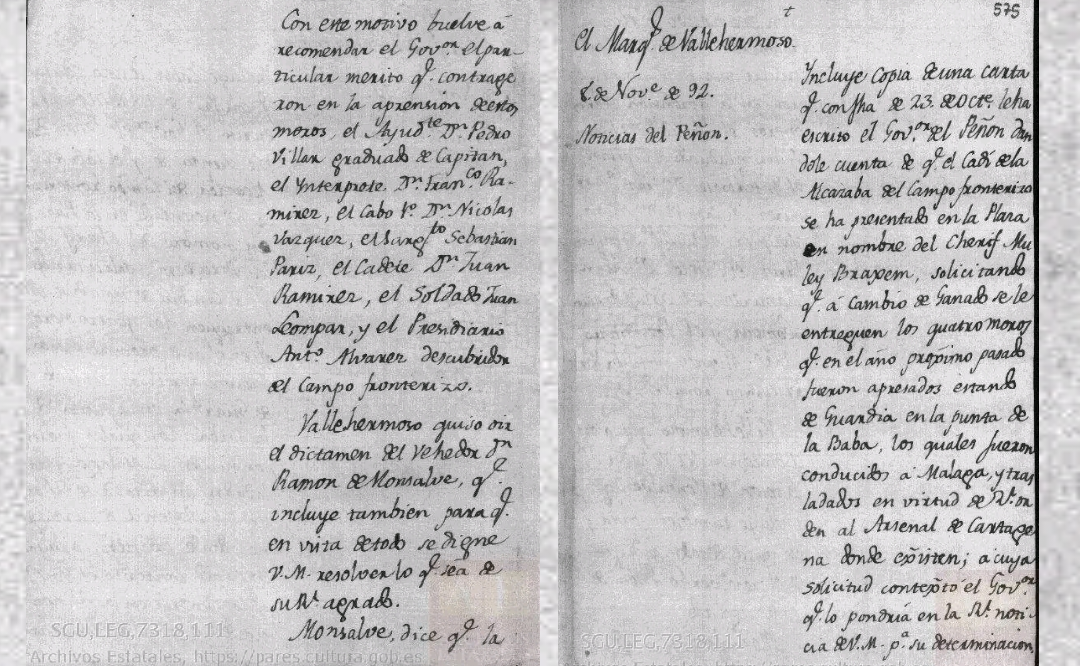 Con este motivo buelve á
recomendar el Gov.or el par-
ticular merito q.e contrage
ron en la aprension de estos
moros, el Ayud.te D.n Pedro
Villar graduado de Capitan,
el Ynterprete D.n Fran.co Ra-
mirez, el Cabo 1.o D.n Nicolas
Vazquez, el Sarg.to Sebastian
Pariz, el Cadete D.n Juan
Ramirez, el Soldado Juan
Lompar, y el Presidiario
Ant.o Alvarez descubridor
del Campo fronterizo.
Vallehermoso quiso oir
el dictamen del Vehedor D.n
Ramon de Monsalve, q.e
incluye tambien para q.e
en vista de todo se digne
V.M. resolver lo q.e sea de
su R.l agrado.
Monsalve, dice q.e la
SGU,LEG,7318,111
Archivos Estatales, https://pares.cultura.gob.es
575
t
El Marq.s de Vallehermoso.
8. de Nov.e de 92.
Noticias del Peñon.
Yncluye Copia de una carta
q.e con fha de 23. de Oct.e le ha
escrito el Gov.or del Peñon dan
dole cuenta de q.e el Cadí de la
Alcazaba del Campo fronterizo
se ha presentado en la Plaza
en nombre del Cherif Mu
ley Braxem, solicitando
q.e á Cambio de Ganado se le
entreguen los quatro moros
q.e en el año proximo pasado
fueron apresados estando
de Guardia en la punta de
la Baba, los quales fueron
conducidos á Malaga, y tras
ladados en virtud de R.l or
den al Arsenal de Cartage
na donde existen; á cuya
solicitud contextó el Gov.or
q.e lo pondria en la R.l noti-
cia de V.M. p.a su determinacion,
SGU,LEG,7318,111